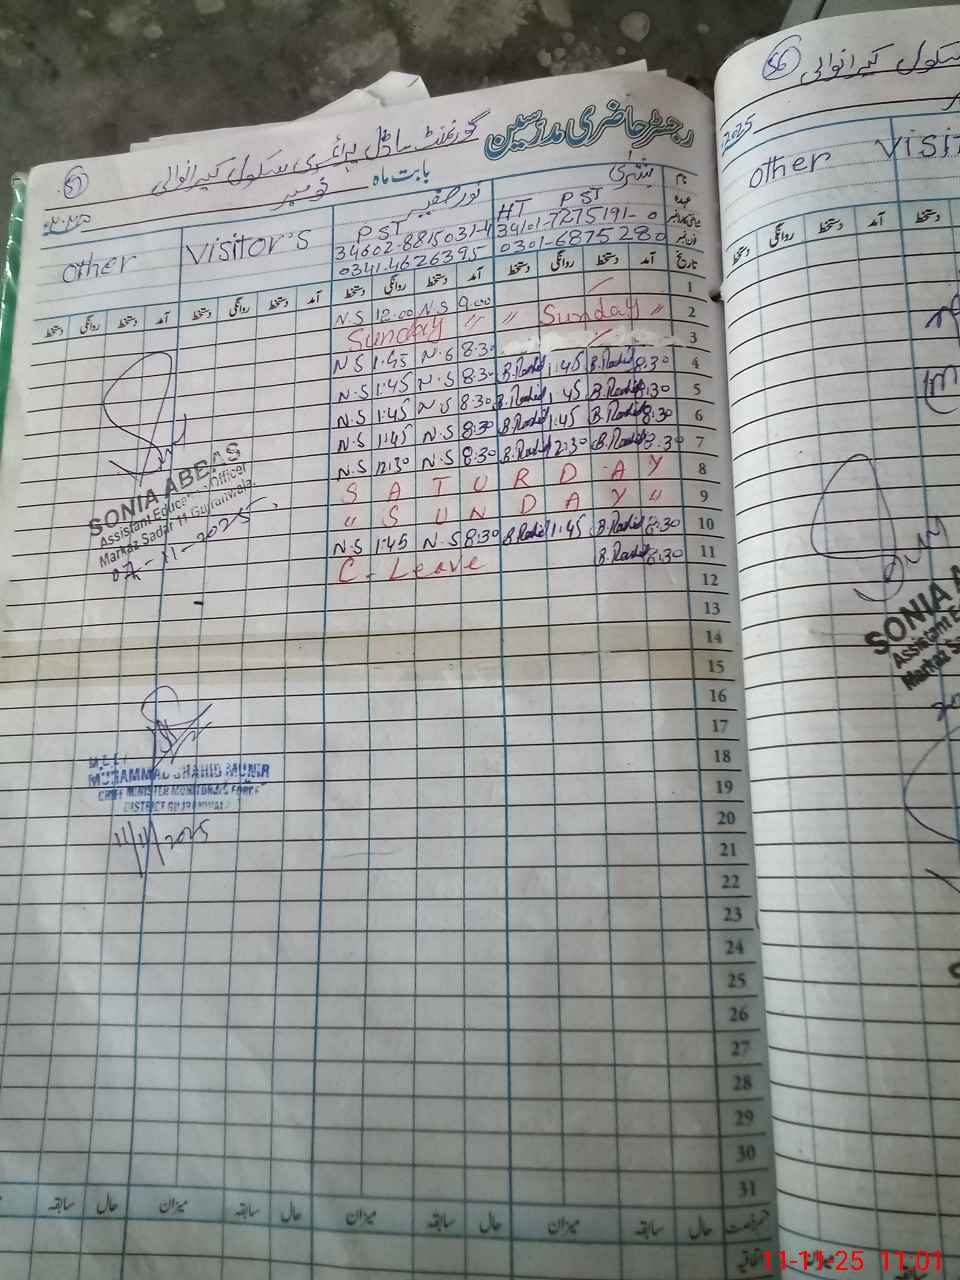 رجسٹر حاضری مدرسین گورنمنٹ ماڈل پرائمری سکول کیرانوالی 57
بابت ماہ نومبر ۲۰۲۵
نام بشریٰ نور صغیر Visitor's other
عہدہ HT PST PST
34101-7275191-0 34602-8815031-4
فون نمبر 0301-6875280 0341-4626395
تاریخ آمد دستخط روانگی دستخط آمد دستخط روانگی دستخط آمد دستخط روانگی دستخط آمد دستخط روانگی دستخط
1 9.00 N.S 12.00 N.S
2 " Sunday " " Sunday
3 8:30 N.S 1:45 N.S
4 8:30 B.Rashid 1:45 B.Rashid 8:30 N.S 1:45 N.S
5 8:30 B.Rashid 1:45 B.Rashid 8:30 N.S 1:45 N.S
6 8:30 B.Rashid 1:45 B.Rashid 8:30 N.S 1:45 N.S
7 8:30 B.Rashid 12:30 B.Rashid 8:30 N.S 12:30 N.S
8 SATURDAY
9 " SUNDAY "
10 8:30 B.Rashid 1:45 B.Rashid 8:30 N.S 1:45 N.S
11 8:30 B.Rashid C. Leave
12
13
14
15
16
17
18
19
20
21
22
23
24
25
26
27
28
29
30
31
حال سابقہ میزان حال سابقہ میزان حال سابقہ میزان حال سابقہ
اتفاقیہ
SONIA ABBAS
Assistant Education Officer
Markaz Sadar 11 Gujranwala.
07-11-2025
M.E.E.I
MUHAMMAD SHAHID MUNIR
CHIEF MINISTER MONITORING FORCE
DISTRICT GUJRANWALA
11/11/2025
56 سکول کیرانوالی
2025
other Visit
دستخط روانگی دستخط آمد دستخط
SONIA A
Assistant E
Markaz Sa
میزان سابقہ
11-11-25 11:01